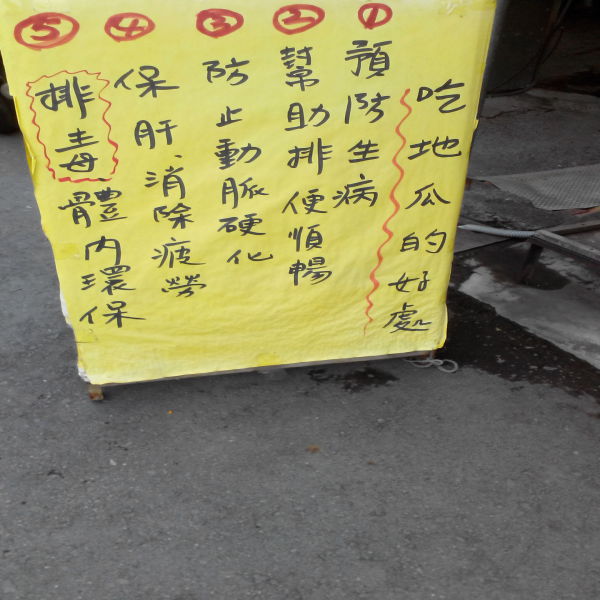 吃地瓜的好處
①預防生病
②幫助排便順暢
③防止動脈硬化
④保肝、消除疲勞
⑤排毒體內環保